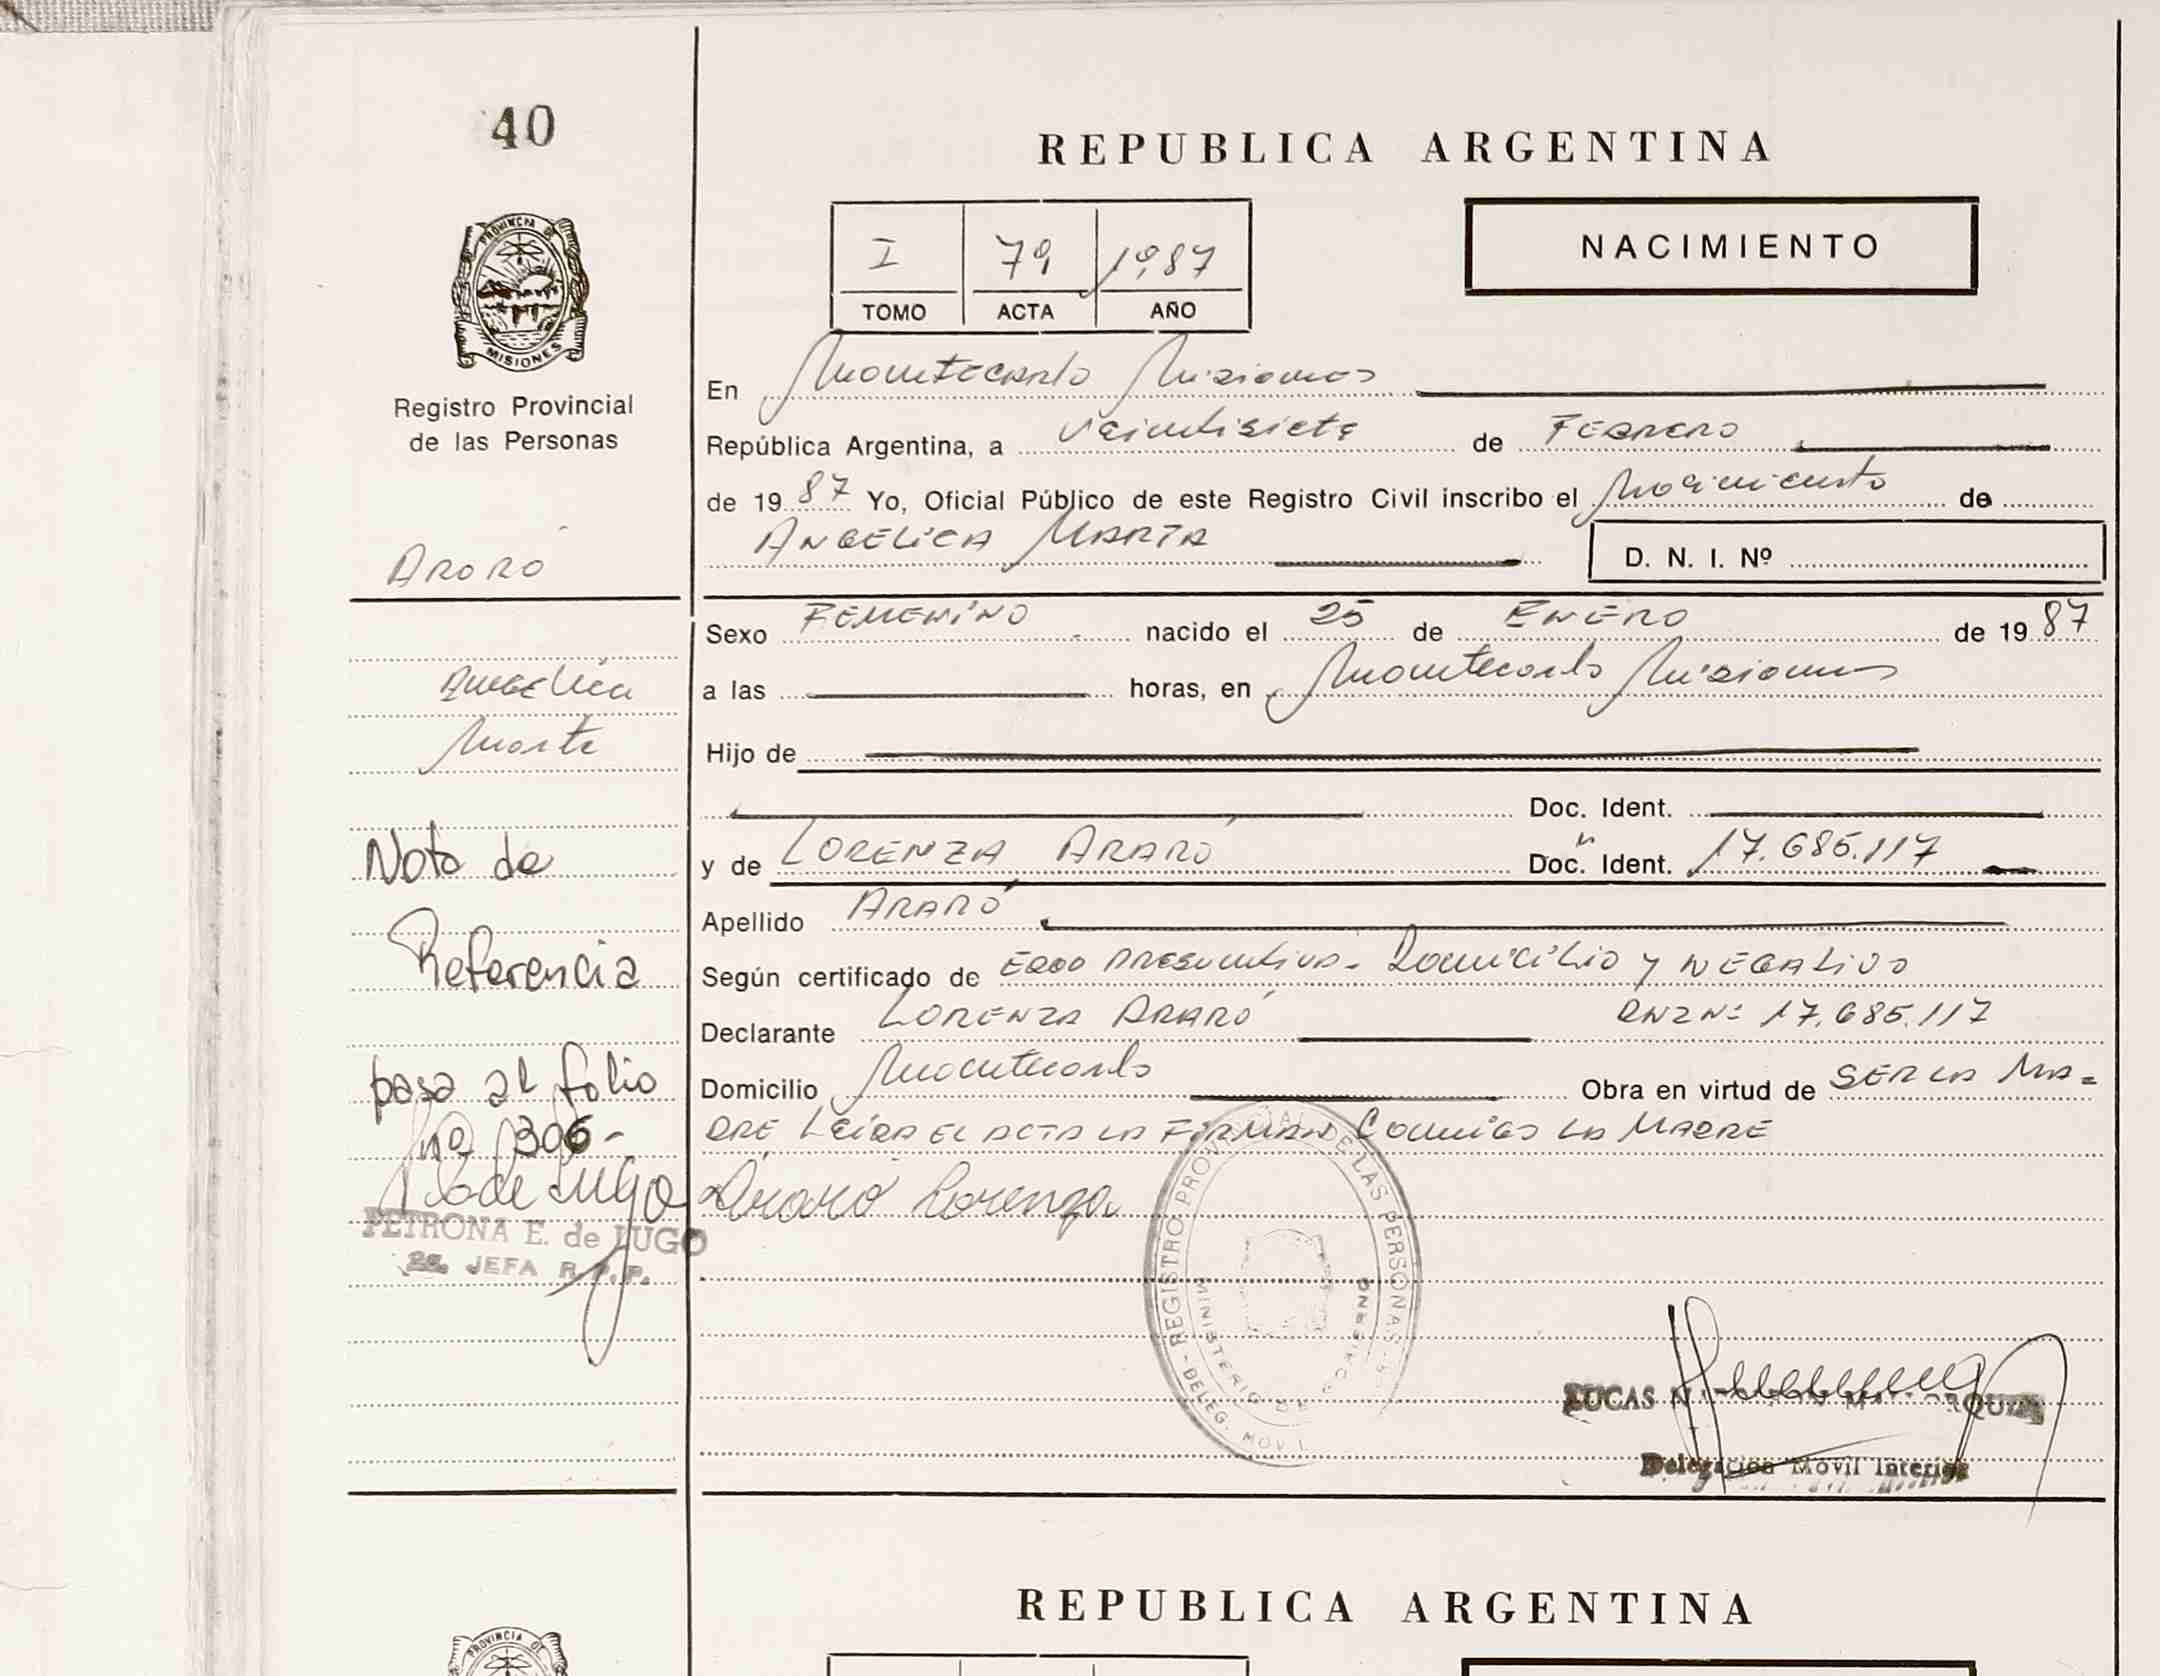 40
REPUBLICA ARGENTINA
PROVINCIA DE
MISIONES
Registro Provincial
de las Personas
I 79 1987
TOMO ACTA AÑO
NACIMIENTO
En Montecarlo Misiones
República Argentina, a veintisiete de FEBRERO
de 1987 Yo, Oficial Público de este Registro Civil inscribo el Nacimiento de
ANGELICA MARTA
D. N. I. Nº
ARARÓ
Sexo FEMENINO nacido el 25 de ENERO de 1987
Angelica
Marta
a las horas, en Montecarlo Misiones
Hijo de
Doc. Ident.
y de LORENZA ARARÓ Doc. Ident. 17.685.117
Apellido ARARÓ
Nota de
Referencia
pasa al folio
nº 306-
Según certificado de EDAD PRESUNTIVA. Domicilio y NEGATIVO
Declarante LORENZA ARARÓ DNI Nº 17.685.117
Domicilio Montecarlo Obra en virtud de SER LA MA=
DRE LEIDA EL ACTA LA FIRMAN Conmigo LA MADRE
E de Lugo
Araró Lorenza
PETRONA E. de LUGO
2a. JEFA R.P.P.
REGISTRO PROVINCIAL DE LAS PERSONAS
MINISTERIO DE GOBIERNO
DELEG. MOVIL
LUCAS
Delegación Móvil Interior
REPUBLICA ARGENTINA
PROVINCIA DE